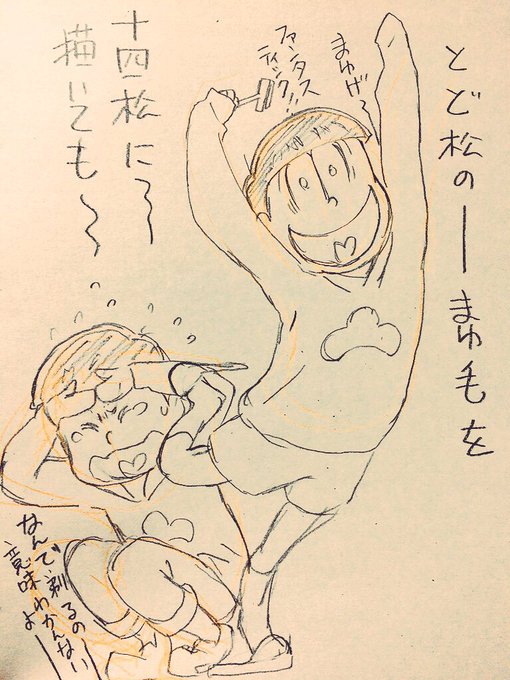 とど松のーまゆ毛を
まゆげ〜
ファンタス
ティック!!
十四松に〜
描いても〜
なんで剃るの
意味わかんない
よ